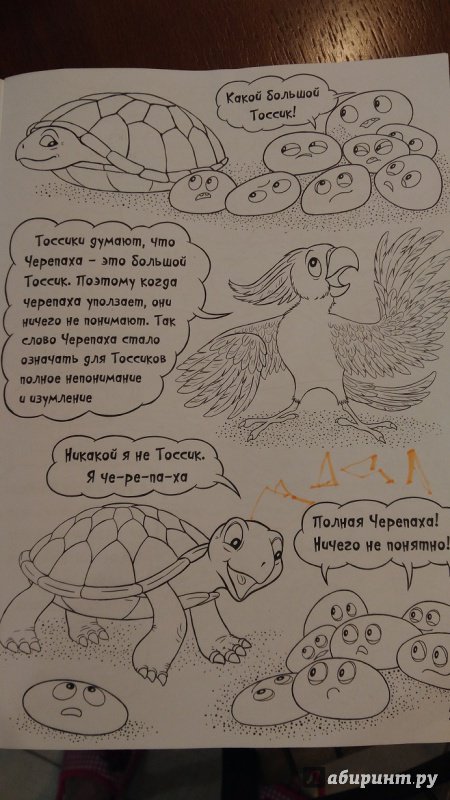 Какой большой
Тоссик!
Тоссики думают, что
Черепаха – это большой
Тоссик. Поэтому когда
черепаха уползает, они
ничего не понимают. Так
слово Черепаха стало
означать для Тоссиков
полное непонимание
и изумление
Никакой я не Тоссик.
Я че-ре-па-ха
Полная Черепаха!
Ничего не понятно!
Лабиринт.ру